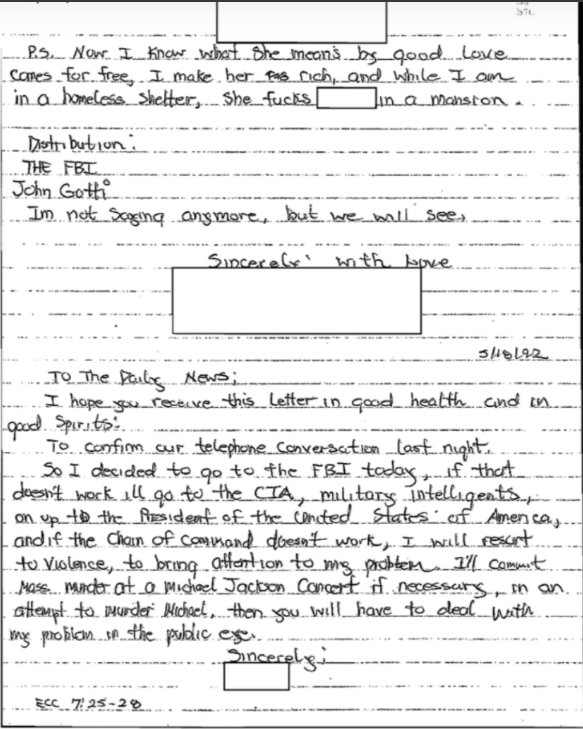 P.S. Now I know what she means by good love
comes for free, I make her rich, and while I am
in a homeless shelter, she fucks in a mansion.
Distribution:
THE FBI
John Gotti
Im not Saying anymore, but we will see,
Sincerely' with Love
5/18/92
To The Daily News;
I hope you receive this Letter in good health and in
good Spirits:
To confirm our telephone conversation last night.
So I decided to go to the FBI today, if that
doesn't work ill go to the CIA, military intelligents,
on up to the President of the United States of America,
and if the Chain of command doesn't work, I will resort
to violence, to bring attention to my problem. I'll commit
Mass murder at a Michael Jackson Concert if necessary, in an
attempt to murder Michael, then you will have to deal with
my problem in the public eye.
Sincerely;
ECC 7:25-28